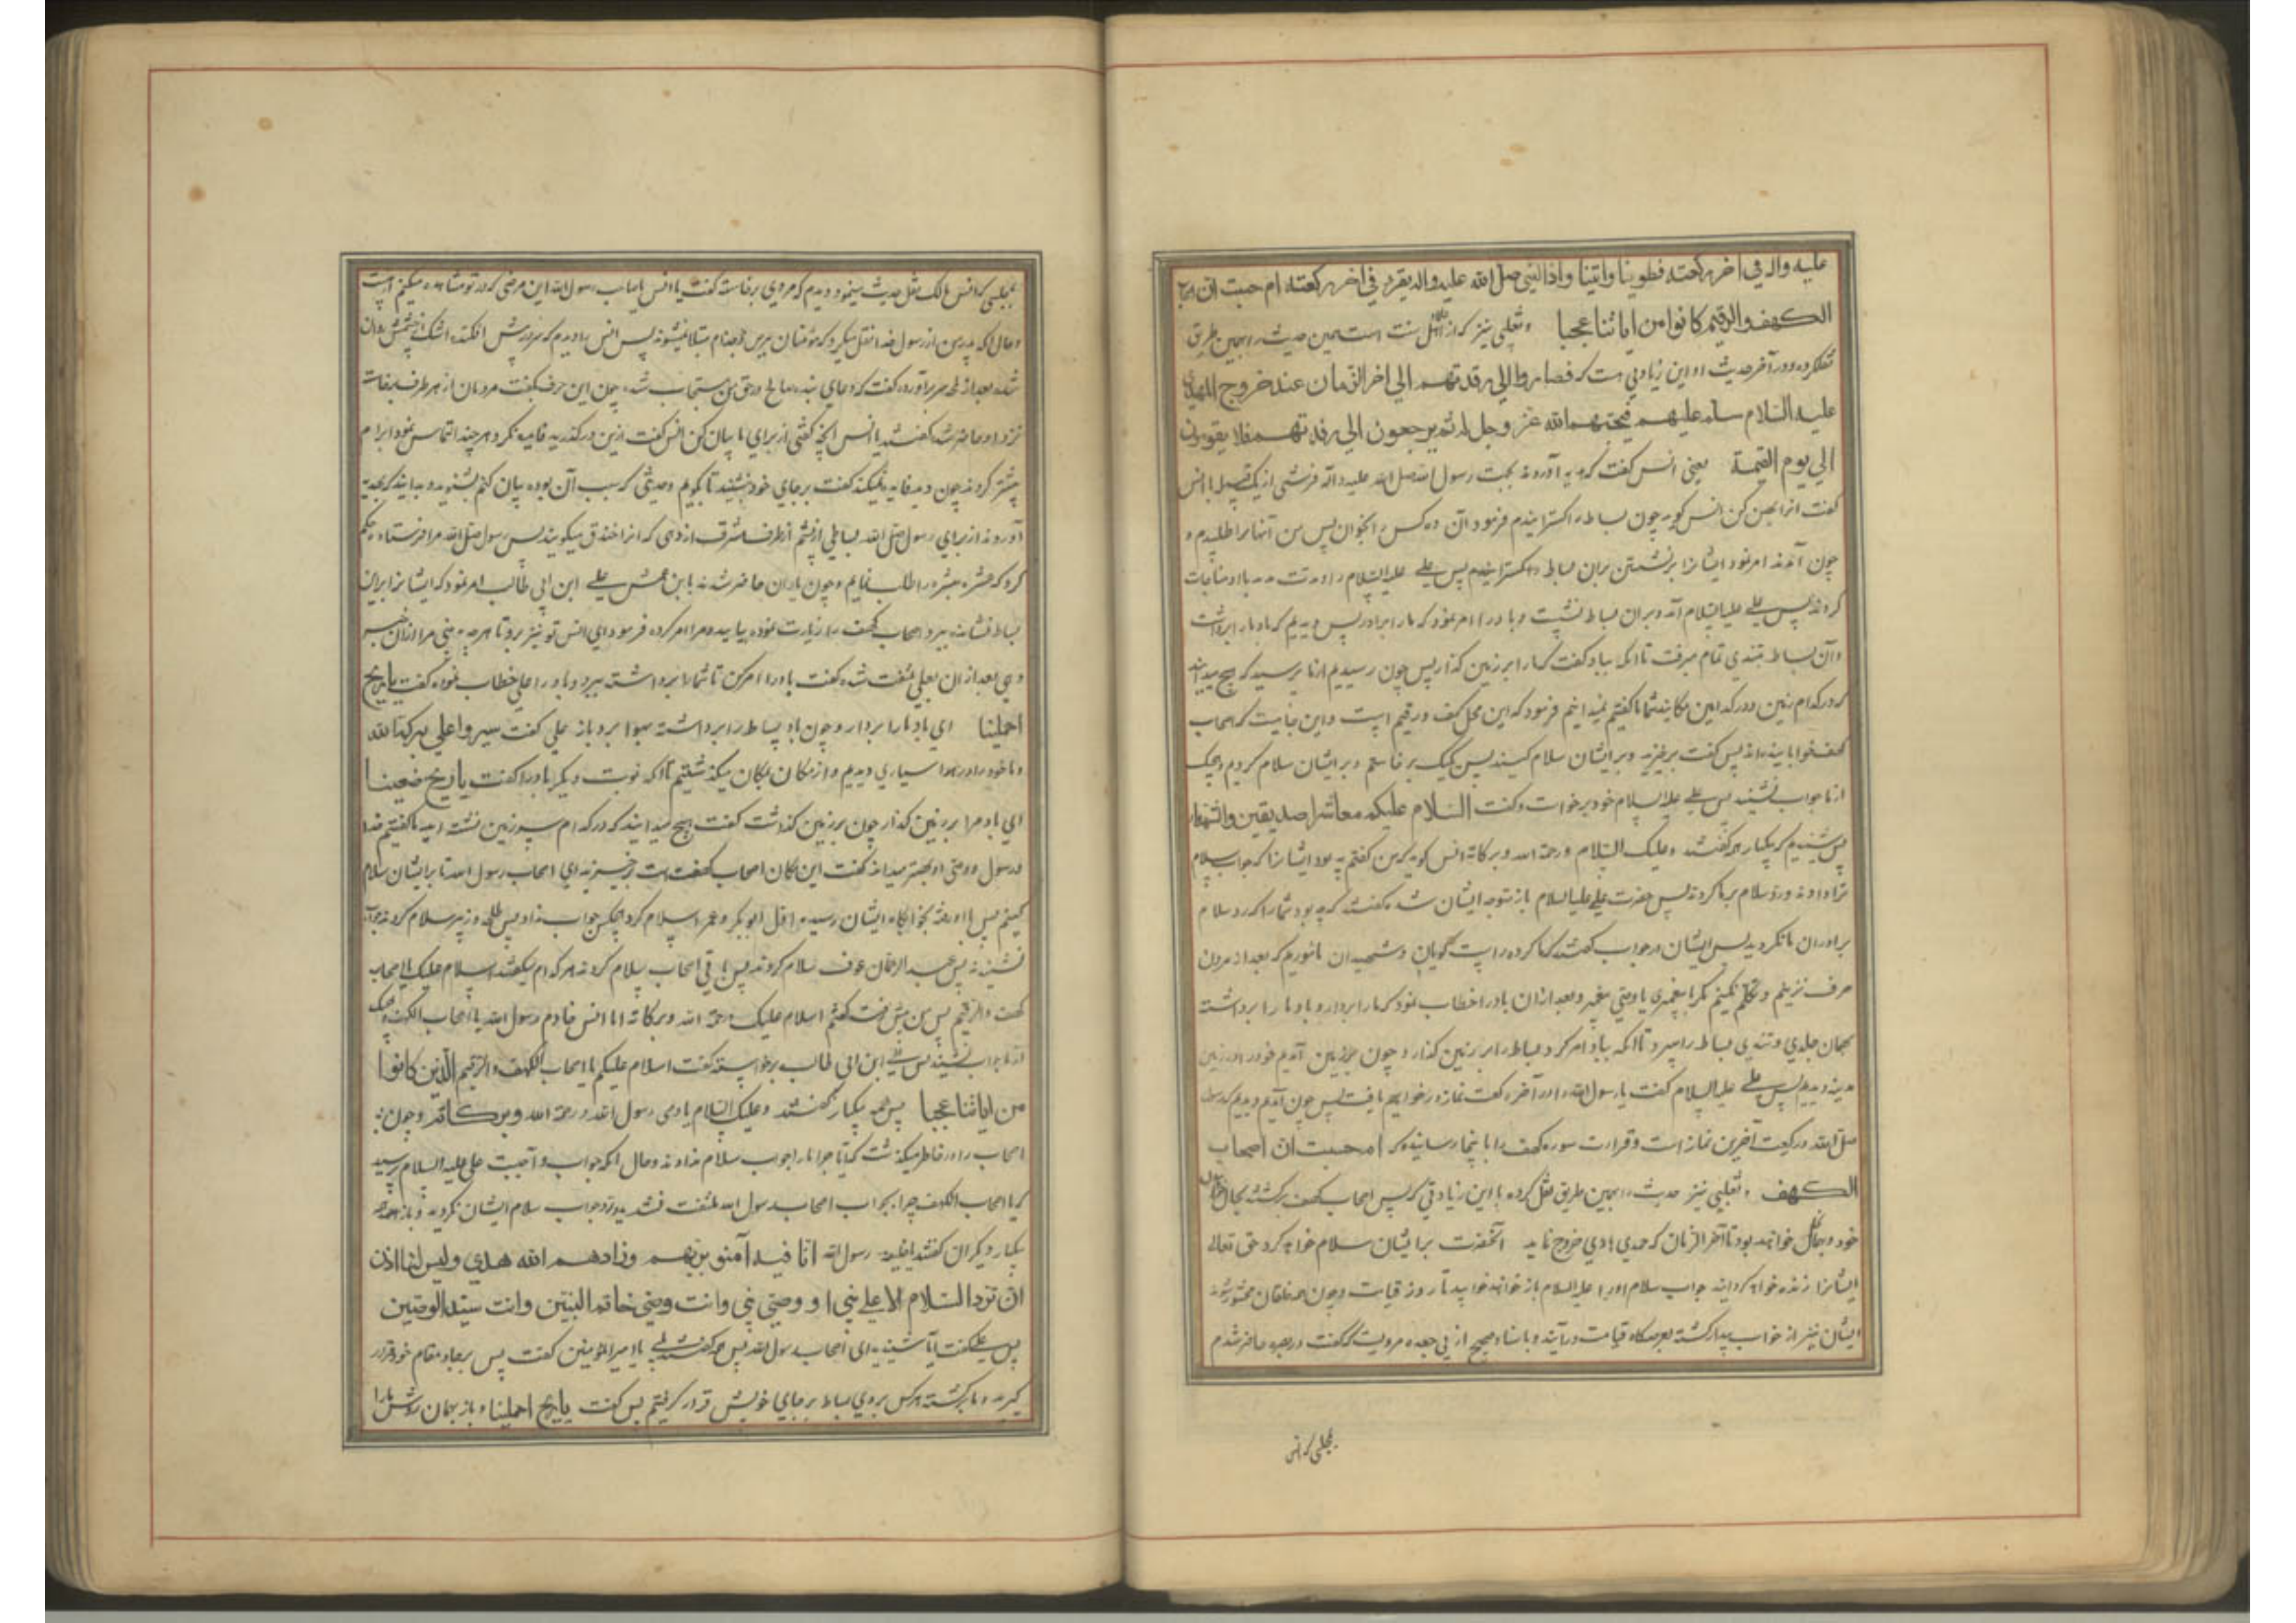 علیه واله في اخر ركعته فطوینا واتینا واذا النبي صلى الله علیه واله یقرء في اخر ركعته ام حسبت ان اصحاب
الكهف والرقیم كانوا من ایاتنا عجبا وثعلبی نیز که از اهل سنت است همین حدیث را بهمین طریق
نقلکرده و در آخر حدیث او این زیادتی هست که فصاروا الي رقدتهم الي اخر الزمان عند خروج المهدي
علیه السلام یسلم علیهم فیحییهم الله عز وجل له ثم یرجعون الي رقدتهم فلا یقومون
الي یوم القیمة یعنی انس کفت که هدیه آوردند بجهت رسول الله صلی الله علیه وآله فرشی از یک قصبه یا انس
کفت انرا پهن کن انس کوید چون بساط را کسترانیدم فرمود آن ده کس را بخوان پس من آنها را طلبیدم و
چون آمدند امر نمود ایشانرا بر نشستن بران بساط پس علی علیه السلام را و مدت مدید با او مناجات
کردند پس علی علیه السلام آمد و بران بساط نشست و باد را امر نمود که ما را بردار پس دیدیم که باد ما را برداشت
وآن بساط بتندی تمام میرفت تا انکه بباد کفت که ما را بر زمین کذار پس چون رسیدیم از ما پرسید که هیچ میدانید
که در کدام زمین و در کدامین مکانید شما ما کفتیم نمیدانیم فرمود که این محل کهف و رقیم است و این جاییست که اصحاب
کهف خوابانیده اند پس کفت برخیزید و بر ایشان سلام کنید پس یک یک برخاستیم و بر ایشان سلام کردیم و هیچیک
از ما جواب نشنید پس علی علیه السلام خود برخواست و کفت السلام علیکم معاشر الصدیقین والشهداء
پس شنیدیم که یکبار همه کفتند وعلیک السلام ورحمة الله وبرکاته انس کوید که من کفتم چه بود ایشانرا که جواب سلام
ترا دادند و رد سلام بر ما نکردند پس حضرت علی علیه السلام باز متوجه ایشان شده کفتند که چه بود شما را که رد سلام
برادران ما نکردید پس ایشان در جواب کفتند که ما کروه راست کویان و شهیدان مأموریم که بعد از مردن
حرف نزنیم و تکلم نکنیم مکر با پیغمبری یا وصی پیغمبر و بعد ازان باد را خطاب نمود که ما را بردار و باد ما را برداشته
بهمان جلدی و تندی بساط را میبرد تا انکه بباد امر کرد بساط را بر زمین کذار و چون بر زمین آمدیم خود را در زمین
مدینه دیدیم پس علی علیه السلام کفت یا رسول الله را در آخر رکعت نماز در خواهیم یافت پس چون آمدیم و دیدیم که رسول
صلی الله در رکعت آخرین نماز است و قرائت سوره کهف را باینجا رسانیده که ام حسبت ان اصحاب
الكهف و ثعلبی نیز حدیث را بهمین طریق نقل کرده با این زیادتی که پس اصحاب کهف برکشتند بحال
خود و بهمان حال خواهند بود تا آخر الزمان که مهدی هادی خروج نماید آنحضرت بر ایشان سلام خواهد کرد حق تعالی
ایشانرا زنده خواهد کردانید جواب سلام او را علیه السلام باز خواهند خوابید تا روز قیامت و چون همه خلقان محشور شوند
ایشان نیز از خواب بیدار کشته بعرصه کاه قیامت در آیند و باسناد صحیح از ابی جعده مرویست که کفت در بصره حاضر شدم
بمجلسی که انس
بمجلسی که انس مالک نقل حدیث مینمود و دیدم که مردی برخاست کفت یا انس یا صاحب رسول الله این مرضی که در تو مشاهده میکنم از چیست
و حال آنکه پدر من از رسول خدا نقل میکرد که مؤمنان ببرص و جذام مبتلا نمیشوند پس انس را دیدم که سر در پیش افکنده اشک از چشمش روان
شده بعد از لمحه سر برآورده کفت که دعای بنده صالح در حق من مستجاب شد چون این حرف بکفت مردمان از هر طرف برخاسته
نزد او حاضر شده کفتند یا انس آنچه کفتی از برای ما بیان کن انس کفت ازین درکذرید فایده نکرد و هر چند التماس نمود ابرام
بیشتر کردند چون دید فایده نمیکند کفت برجای خود بنشینید تا بکویم و حدیثی که سبب آن بوده بیان کنم بشنوید و بدانید که هدیه
آوردند از برای رسول صلی الله بساطی از پشم از طرف مشرق از دهی که انرا خندق میکویند پس رسول صلی الله مرا فرستاد و حکم
کرد که عشره مبشره را طلب نمایم و چون یاران حاضر شدند با ابن عمش علی ابن ابی طالب امر نمود که ایشانرا بران
بساط نشانده ببرد و اصحاب کهف را زیارت نموده بیایید و مرا امر کرده فرمود ای انس تو نیز برو تا هر چه بینی مرا ازان خبر
دهی بعد ازان بعلی ملتفت شده کفت باد را امر کن تا شما را برداشته ببرد و باد را علی خطاب نموده کفت یا ریح
احملینا ای باد ما را بردار و چون باد بساط را برداشته بهوا برد باز علی کفت سیروا علي بركة الله
و ما خود را در هوا سیاری دیدیم و از مکان بمکان میکذشتیم تا انکه نوبت دیکر باد را کفت یا ریح ضعینا
ای باد ما را بر زمین کذار چون بر زمین کذاشت کفت هیچ میدانید که در کدام سرزمین نشسته اید ما کفتیم خدا
ورسول و وصی او بهتر میدانند کفت این مکان اصحاب کهف است برخیزید ای اصحاب رسول الله تا بر ایشان سلام
کنیم پس با او رفته بخوابکاه ایشان رسیده اول ابوبکر و عمر سلام کرد هیچکس جواب نداد پس طلحه و زبیر سلام کردند جواب
نشنیدند پس عبد الرحمان عوف سلام کردند پس باقی اصحاب سلام کردند هر کدام میکفتند السلام علیک یا اصحاب
کهف والرقیم پس من پیش رفته کفتم السلام علیک ورحمة الله وبرکاته انا انس خادم رسول الله یا اصحاب الکهف و هیچیک
از ما جواب نشنیدند پس علی ابن ابی طالب برخواسته کفت السلام علیکم یا اصحاب الکهف والرقیم الذین كانوا
من ایاتنا عجبا پس همه یکبار کفتند وعلیک السلام یا وصی رسول الله ورحمة الله وبركاته و چون
اصحاب را در خاطر میکذشت که آیا چرا ما را جواب سلام ندادند و حال آنکه جواب واجبست علی علیه السلام پرسید
که یا اصحاب الکهف چرا بجواب اصحاب رسول الله ملتفت نشدید و رد جواب سلام ایشان نکردید و باز همه
یکبار دیکران کفتند یا خلیفه رسول الله انا فتیة آمنوا بربهم وزادهم الله هدي ولیس لنا اذن
ان نرد السلام الا علي نبي او وصي نبي وانت وصي خاتم النبیین وانت سید الوصیین
پس علی کفت آیا شنیدید ای اصحاب رسول الله پس همه کفتند بلی یا امیر المؤمنین کفت پس برجا و مقام خود قرار
کیرید و ما برکشته هر کس بروی بساط برجای خویش قرار کرفتیم پس کفت یا ریح احملینا و باز بهمان روش ما را